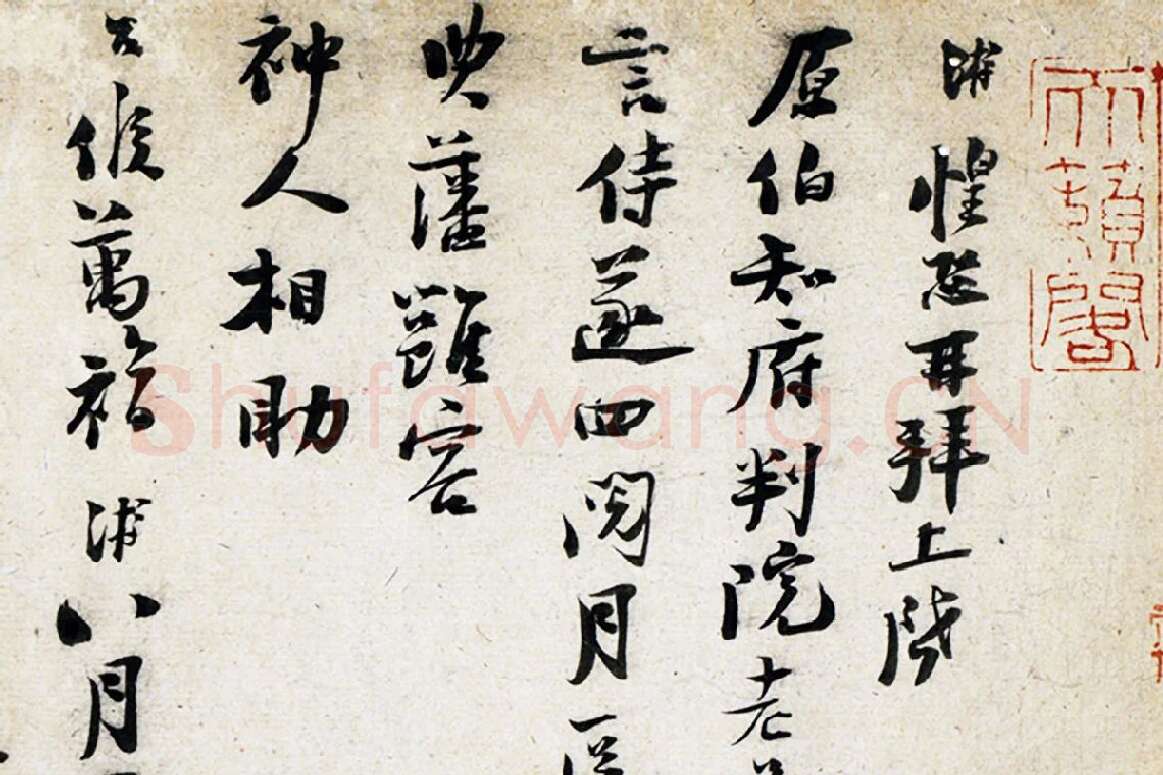 浦惶恐再拜上啓
原伯知府判院老
言侍遂四閱月
典藩雖容
神人相助
台候萬福 浦八月
Shufawang.CN